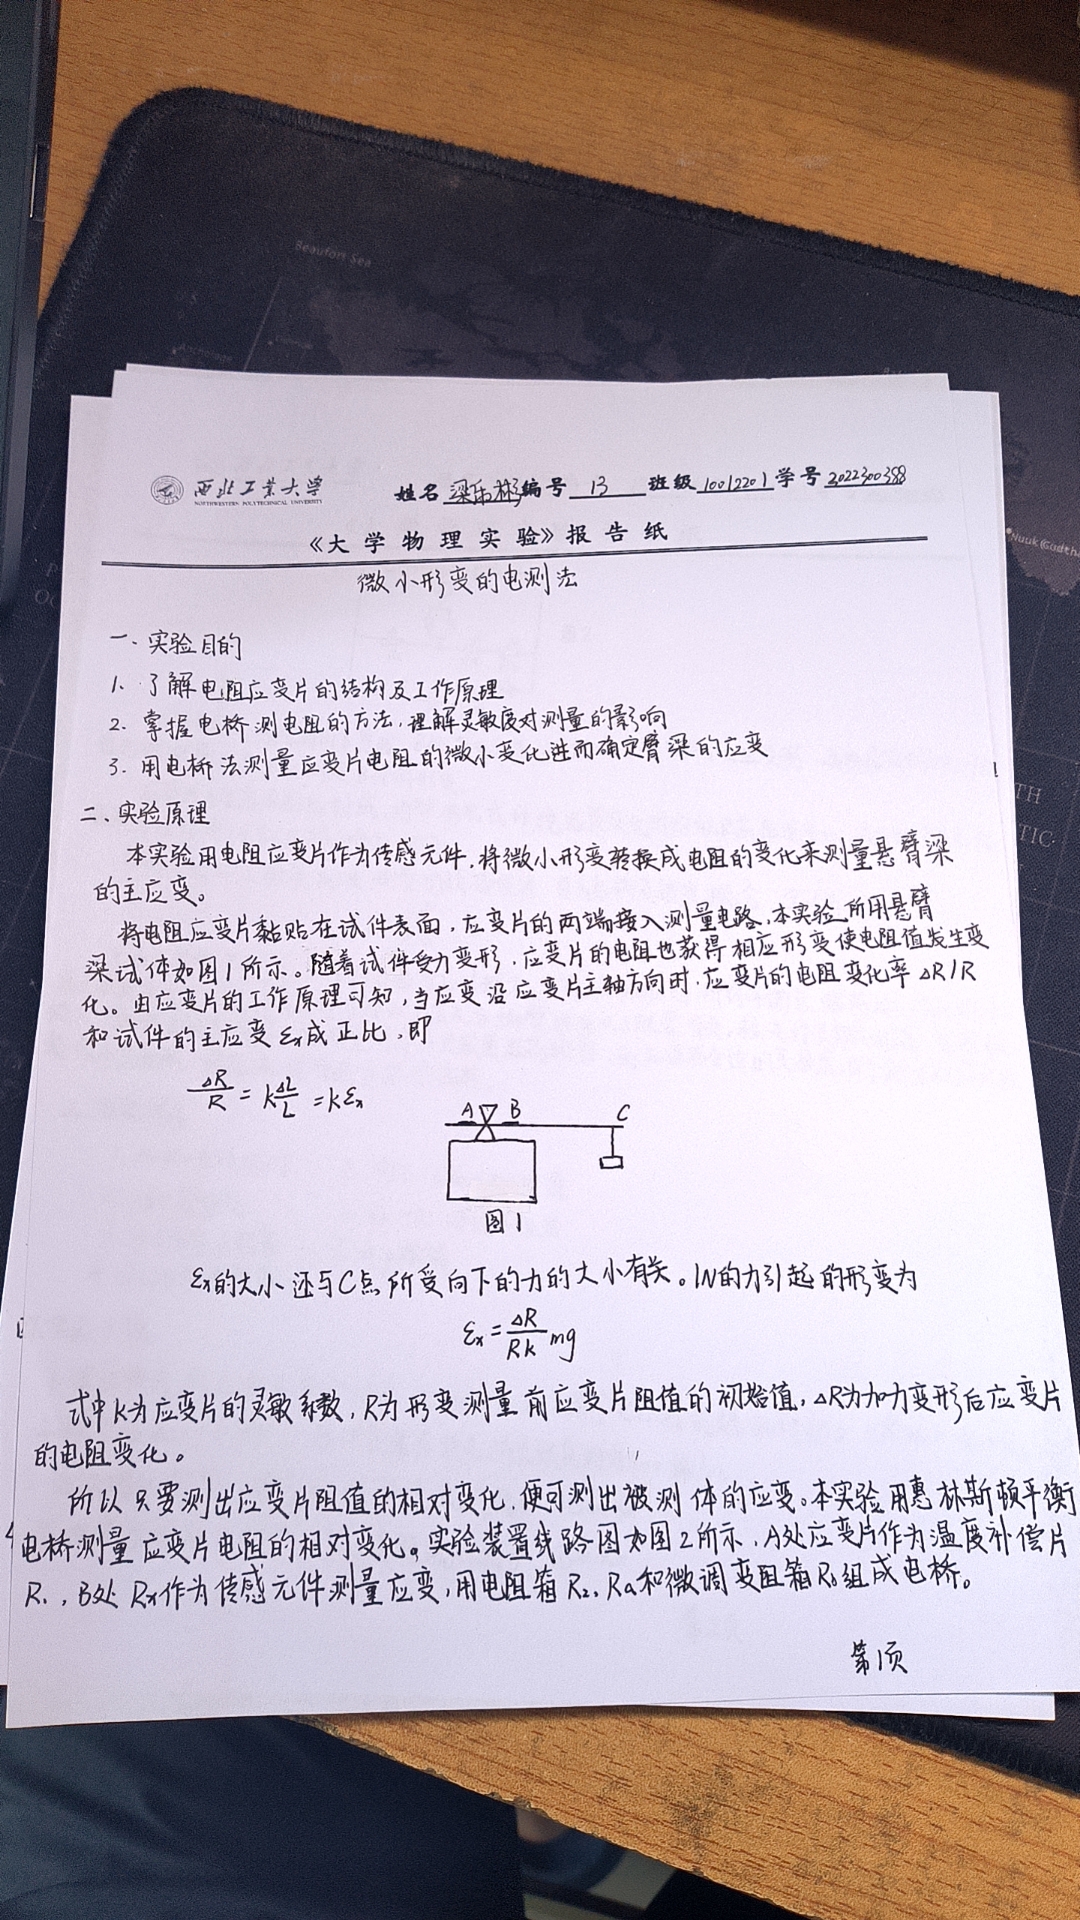 Beaufort Sea
Nuuk (Godthåb
西北工业大学
NORTHWESTERN POLYTECHNICAL UNIVERSITY
姓名 梁乐彬 编号 13 班级 10012201 学号 2022300388
《大学物理实验》报告纸
微小形变的电测法
一、实验目的
1. 了解电阻应变片的结构及工作原理
2. 掌握电桥测电阻的方法,理解灵敏度对测量的影响
3. 用电桥法测量应变片电阻的微小变化进而确定臂梁的应变
二、实验原理
本实验用电阻应变片作为传感元件,将微小形变转换成电阻的变化来测量悬臂梁
的主应变。
将电阻应变片黏贴在试件表面,应变片的两端接入测量电路,本实验所用悬臂
梁试体如图1所示。随着试件受力变形,应变片的电阻也获得相应形变使电阻值发生变
化。由应变片的工作原理可知,当应变沿应变片主轴方向时,应变片的电阻变化率 ΔR/R
和试件的主应变 εx成正比,即
ΔR/R = k ΔL/L = kεx
A B C
图1
εx的大小还与C点所受向下的力的大小有关。1N的力引起的形变为
εx = ΔR/Rk mg
式中k为应变片的灵敏系数,R为形变测量前应变片阻值的初始值,ΔR为加力变形后应变片
的电阻变化。
所以只要测出应变片阻值的相对变化,便可测出被测体的应变。本实验用惠林斯顿平衡
电桥测量应变片电阻的相对变化。实验装置线路图如图2所示,A处应变片作为温度补偿片
R₁,B处Rx作为传感元件测量应变,用电阻箱R₂、Ra和微调变阻箱R₀组成电桥。
第1页